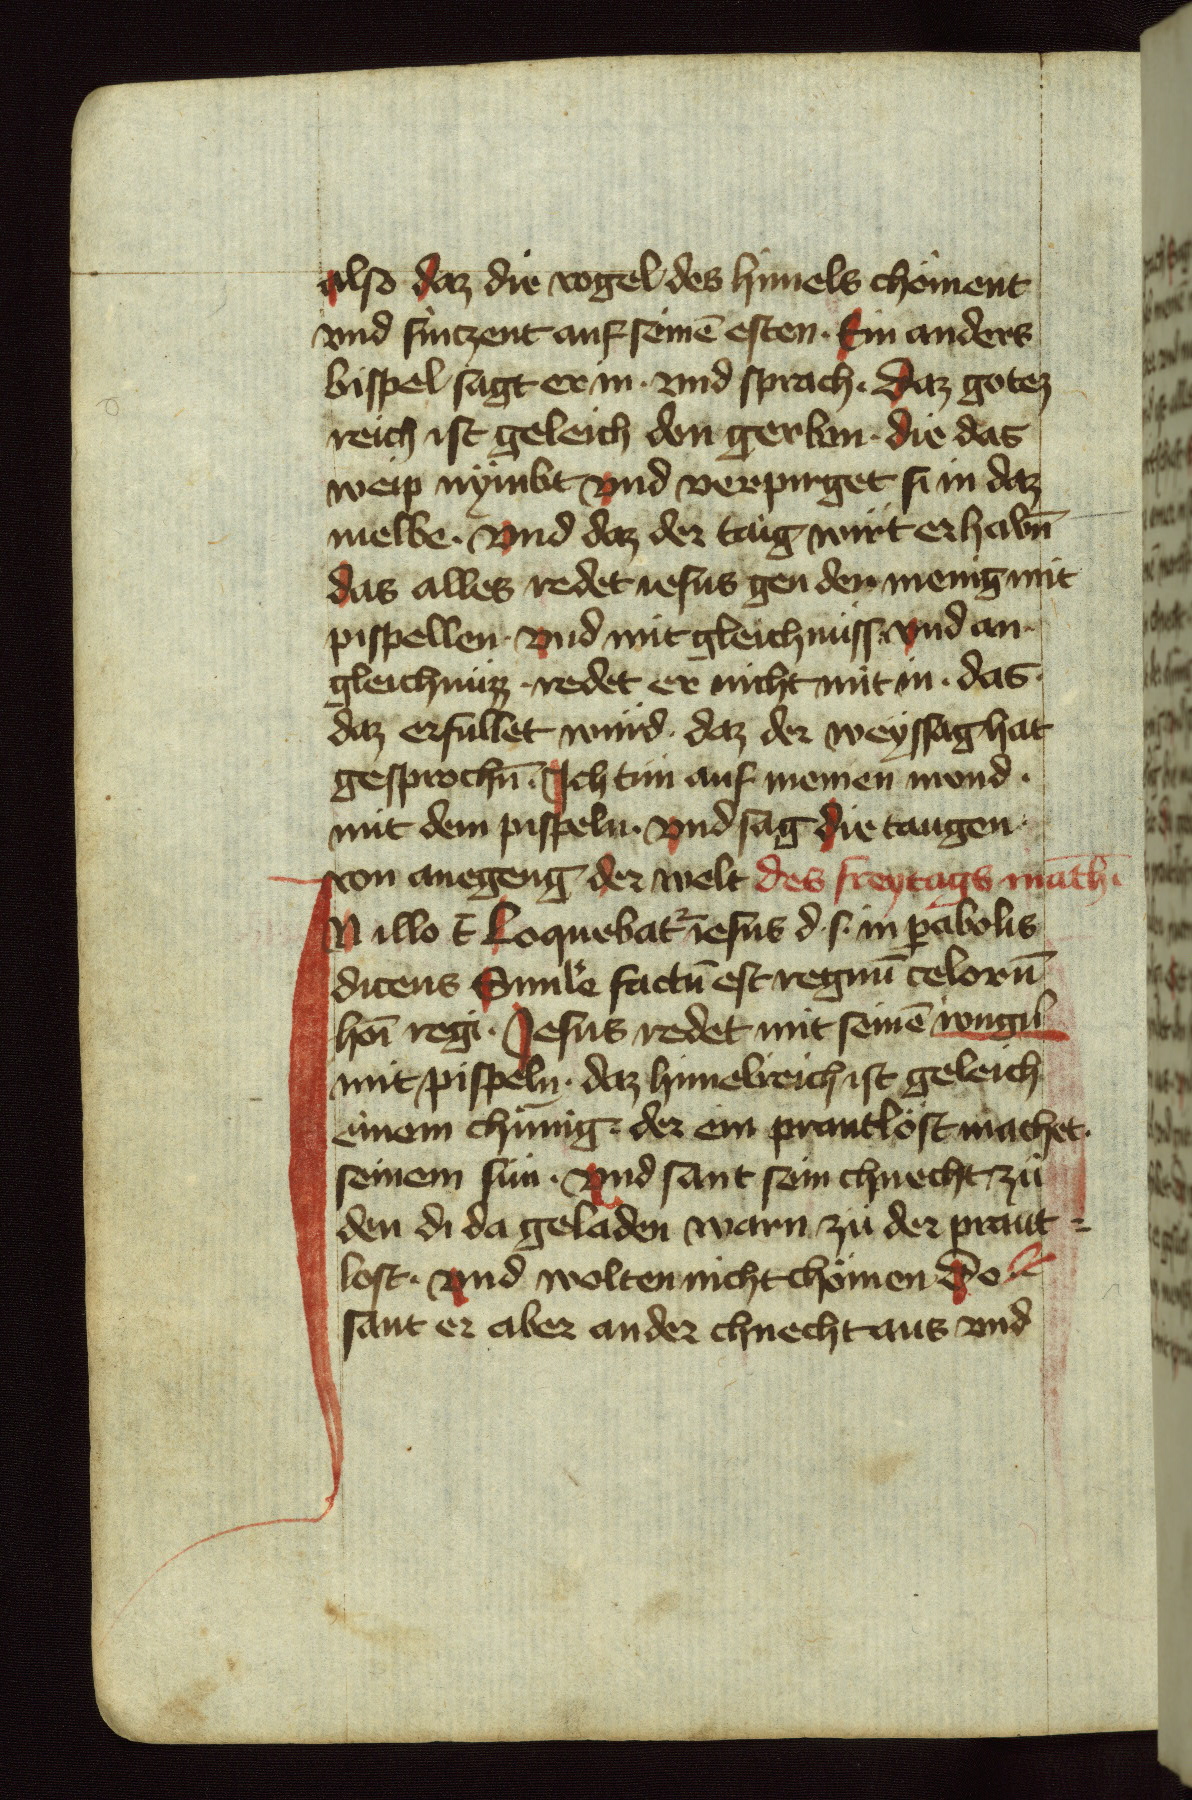 also daz die vogel des himels chöment
vnd sinczent auf seinē esten. Ein anders
bispel sagt er in. vnd sprach. Daz gotez
reich ist geleich den gerben. die das
weip nÿmbt vnd verpirget si in daz
melbe. vnd daz der taig wirt erhabn̄
das alles redet iesus gen den menig mit
pispellen. vnd mit gleichnüss. vnd an
gleichnüzz. redet er nicht mit in. das.
daz erfullet würd. daz der weÿssag hat
gesprochn̄. Ich tün auf meinen mond.
mit dem pispeln. vnd sag die taugen.
von anegeng der welt des freytags math̄i
IN illo t̄ Loquebat᷑ iesus d. s. in ꝑabolis
dicens Simile factū est regnū celorū
hoī regi. Jesus redet mit seinē iungn̄
mit pispeln. daz himelreich ist geleich
einem chünig. der ein prautlöst machet.
seinem sün. vnd sant sein chnecht zü
den di da geladen warn zü der praut=
lost. vnd wolten nicht chömen Do
sant er aber ander chnecht aus vnd